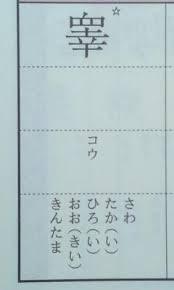 睾
☆
コウ
さわ
たか(い)
ひろ(い)
おお(きい)
きんたま